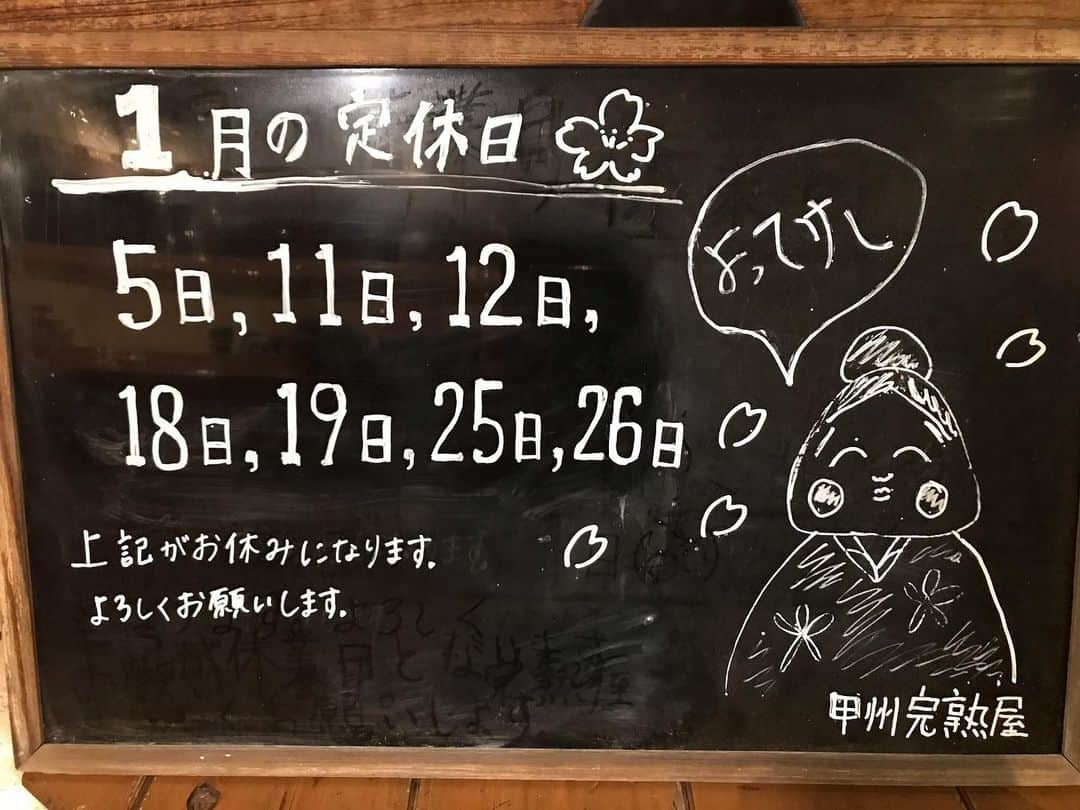 1月の定休日
5日,11日,12日,
18日,19日,25日,26日
上記がお休みになります.
よろしくお願いします.
よってけし
甲州完熟屋